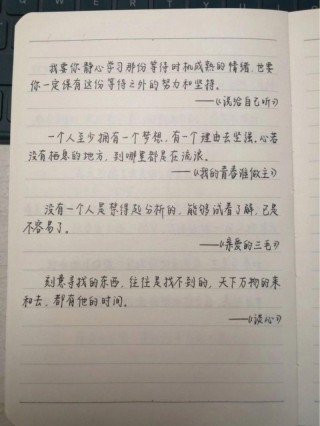 我要你静心学习那份等待时机成熟的情绪,也要
你一定保有这份等待之外的努力和坚持。
——《说给自己听》
一个人至少拥有一个梦想,有一个理由去坚强。心若
没有栖息的地方,到哪里都是在流浪。
——《我的青春谁做主》
没有一个人是禁得起分析的,能够试着了解,已是
不容易了。
——《亲爱的三毛》
刻意寻找的东西,往往是找不到的。天下万物的来
和去,都有他的时间。
——《谈心》